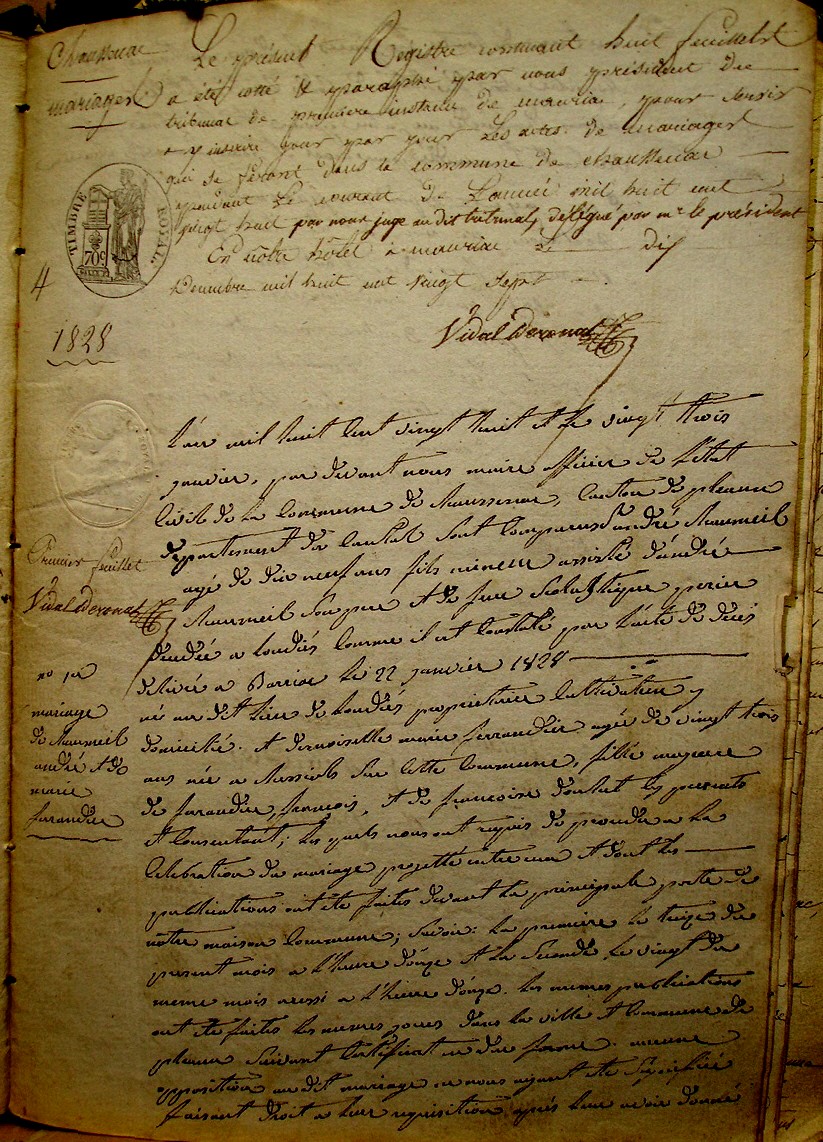 Chaussenac
mariages
Le présent Registre contenant huit feuillets
a été cotté & paraphé par nous président du
tribunal de première instance de mauriac, pour servir
a y inscire jour par jour Les actes de mariages
qui se feront dans la commune de chaussenac
pendant Le courant de L'année mil huit cent
vingt huit par nous juge au dit tribunal, délégué par mr le président
En notre hôtel à mauriac Le dix
Décembre mil huit cent vingt Sept
TIMBRE ROYAL
70c
4
1828
Vidal Deronat
L'an mil huit cent vingt huit et le vingt trois
janvier, par devant nous maire officier de L'état
Civil de la Commune de Chaussenac, Canton de pleaux
département du Cantal sont comparus andré Maurneil
agé de dix neuf ans fils mineur assisté d'andré
Maurneil son pere et de feue Scolastique
décédée a Loudiés Comme il est Constaté par L'acte de décès
délivré a Barriac Le 22 janvier 1828
né au dit Lieu de Loudiés propriétaire Cultivateur y
domicilié. et demoiselle marie ferrandie agée de vingt trois
ans née a sur Cette Commune, fille majeure
de farandie, francois, et de francoise ici presents
et Consentant; Les quels nous ont requis de proceder a La
Celebration du mariage projetté entre eux et dont Les
publications ont été faites devant La principale porte de
notre maison Commune; Savoir: La premiere Le treize du
present mois a L'heure d'onze et La Seconde Le vingt du
meme mois aussi a L'heure d'onze. Les memes publications
ont été faites Les memes jours dans La ville et Commune de
pleaux Suivant Certificat en due forme. aucune
opposition au dit mariage ne nous ayant été Signifiée
faisant droit a Leur requisition, après Leur avoir donné
Premier feuillet
Vidal Deronat
no 1er
mariage
de Maurneil
andré et de
marie
farandie